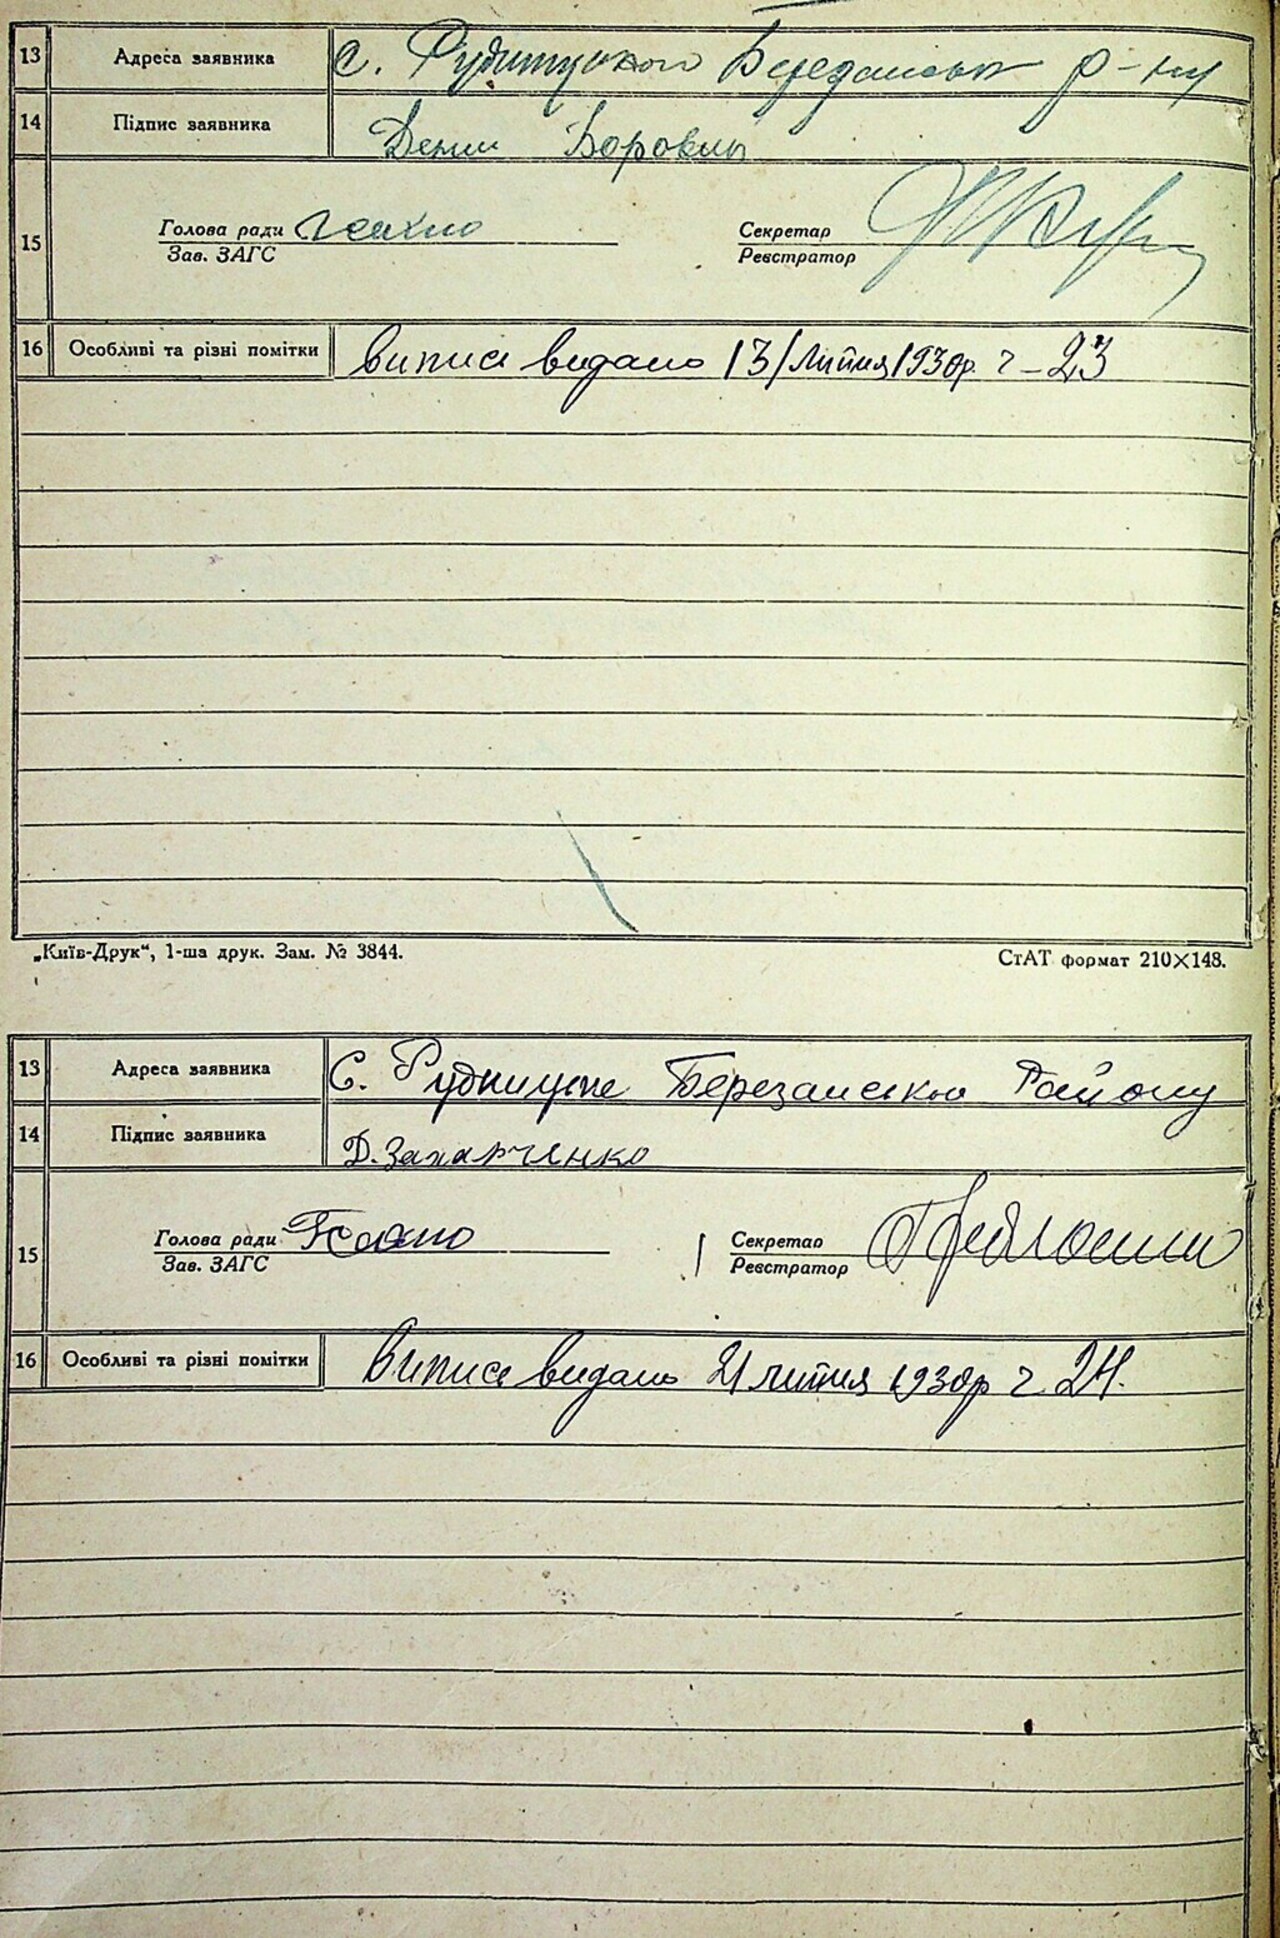 13 Адреса заявника с. Березанськ р-ну
14 Підпис заявника Денис
15 Голова ради Секретар
Зав. ЗАГС Реєстратор
16 Особливі та різні помітки виписа видано 13/липня 1930р. ч – 23
„Київ-Друк“, 1-ша друк. Зам. № 3844. СтАТ формат 210×148.
13 Адреса заявника С. Рудницьке Березанською Району
14 Підпис заявника Д. Захарченко
15 Голова ради Секретар
Зав. ЗАГС Реєстратор
16 Особливі та різні помітки Виписа видано 21 липня 1930р ч 24.